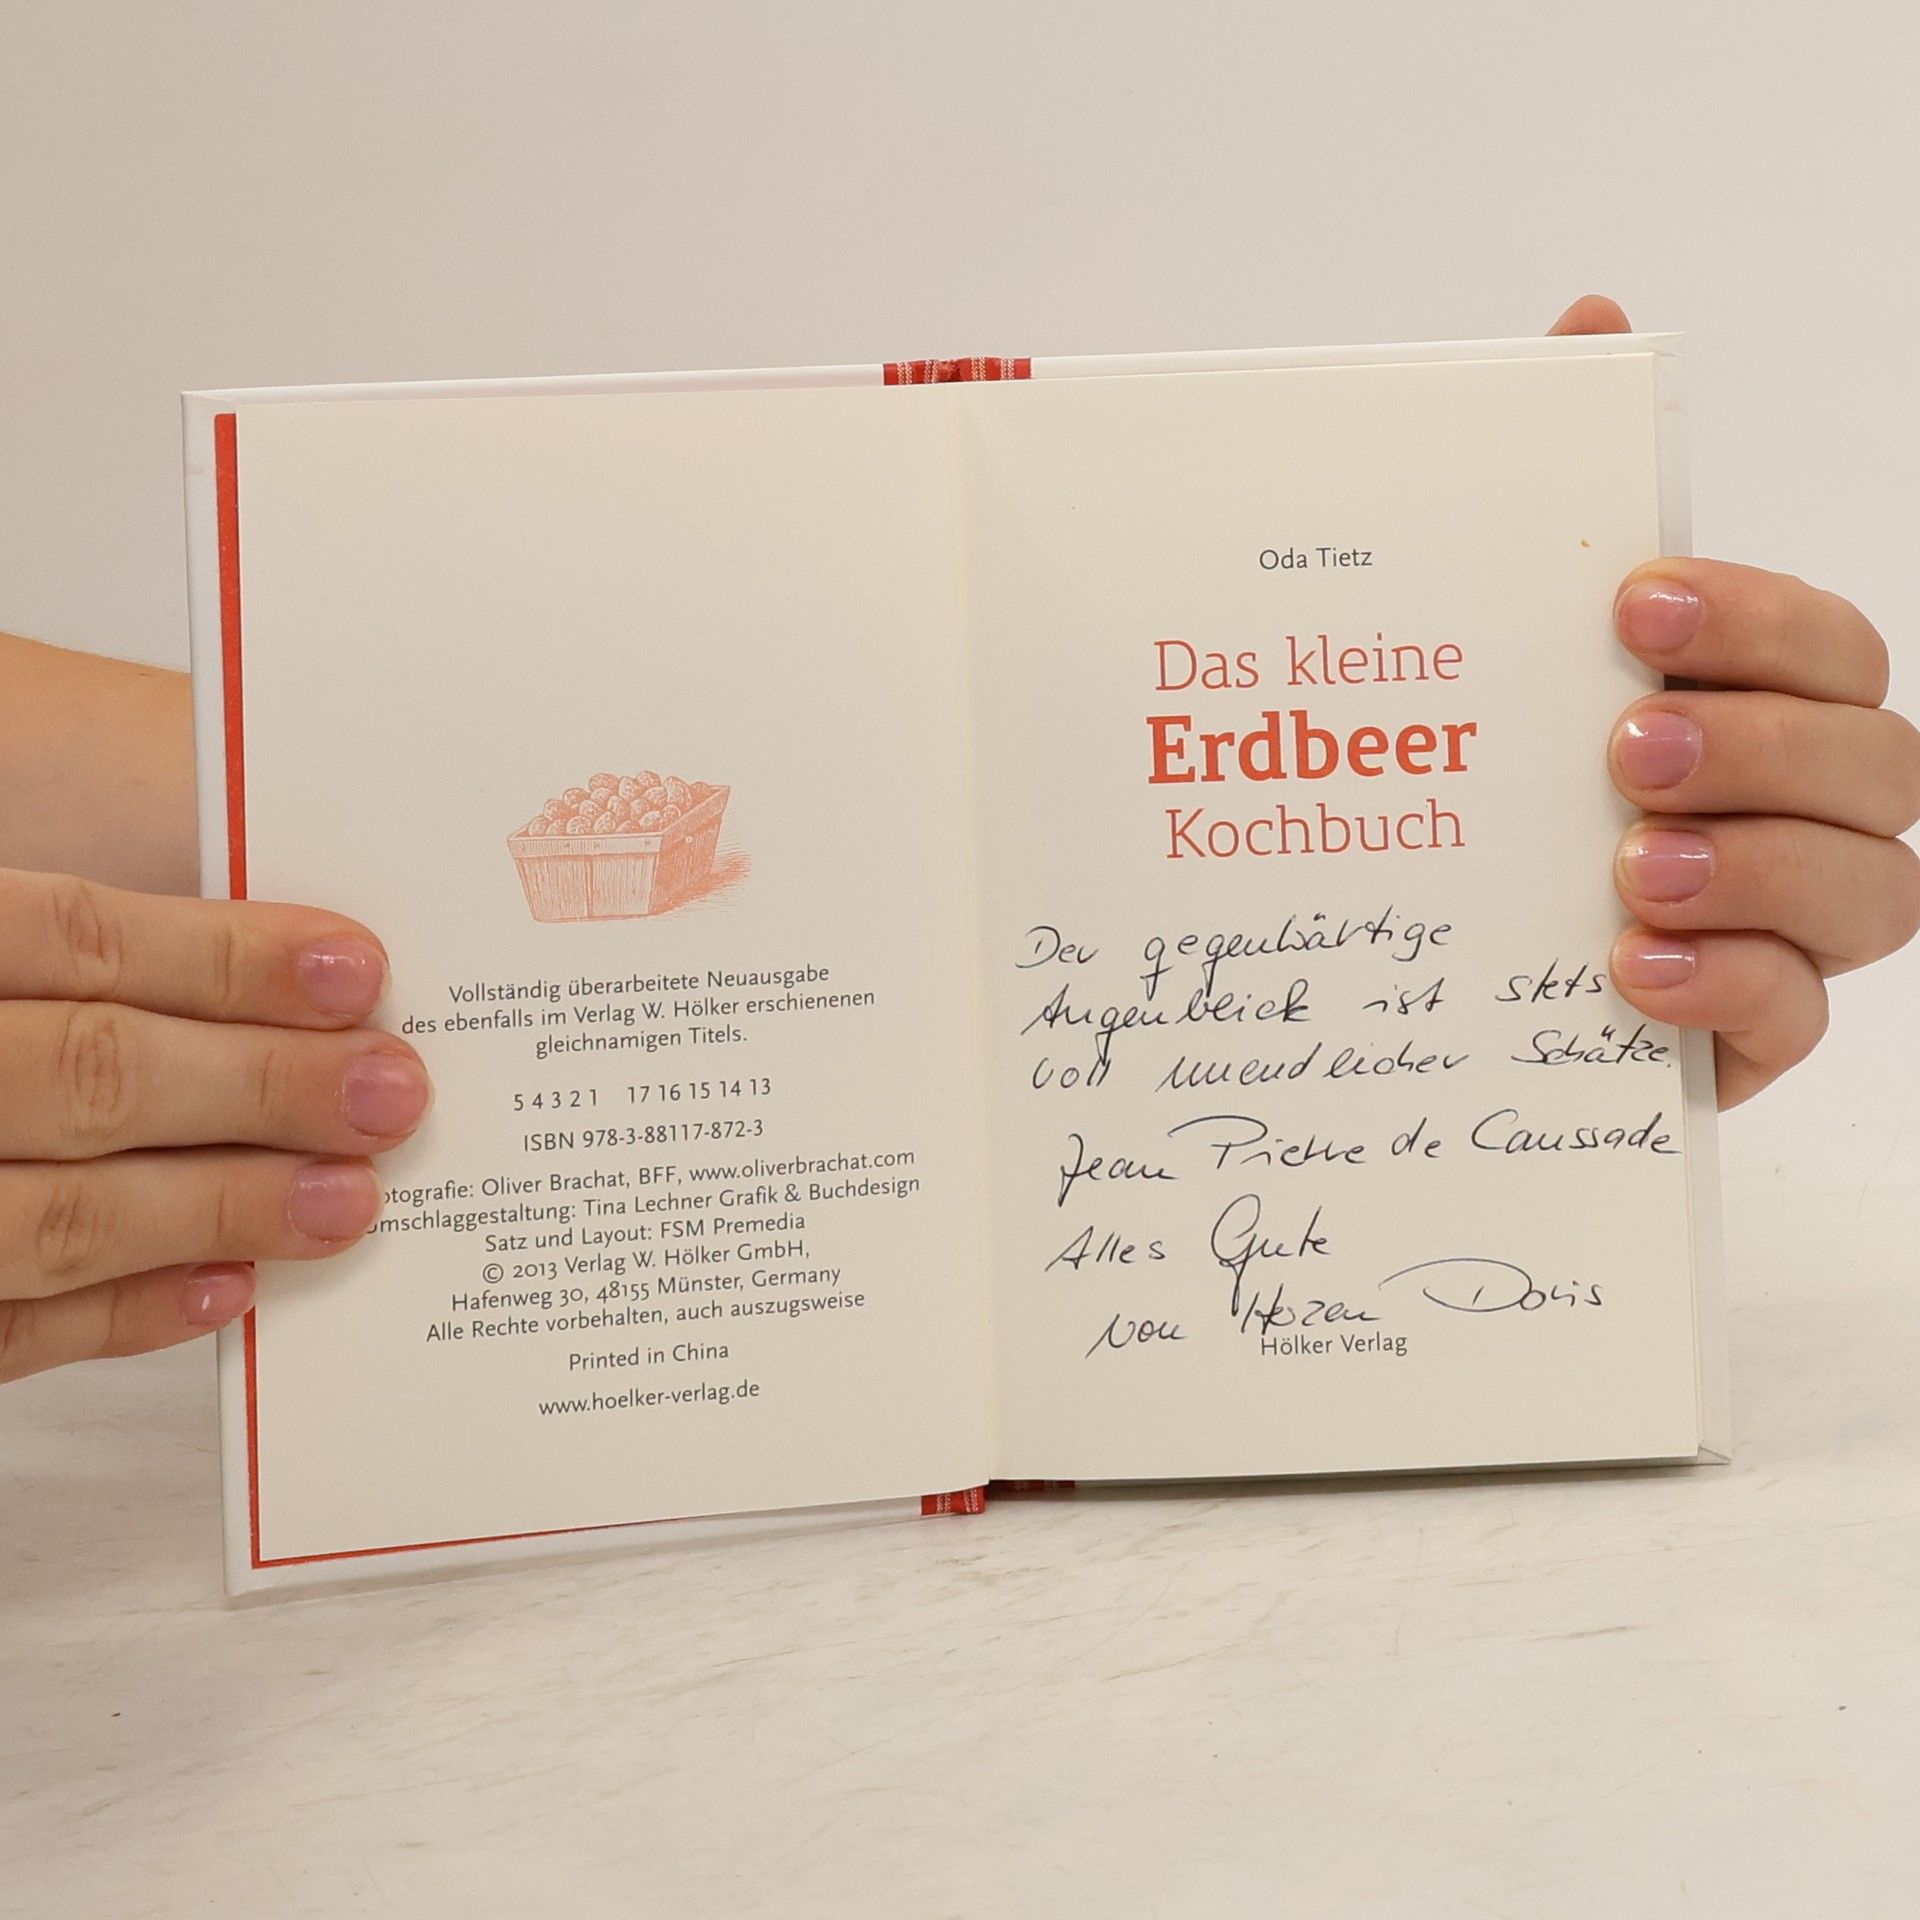 Vollständig überarbeitete Neuausgabe
des ebenfalls im Verlag W. Hölker erschienenen
gleichnamigen Titels.
5 4 3 2 1 17 16 15 14 13
ISBN 978-3-88117-872-3
otografie: Oliver Brachat, BFF, www.oliverbrachat.com
mschlaggestaltung: Tina Lechner Grafik & Buchdesign
Satz und Layout: FSM Premedia
© 2013 Verlag W. Hölker GmbH,
Hafenweg 30, 48155 Münster, Germany
Alle Rechte vorbehalten, auch auszugsweise
Printed in China
www.hoelker-verlag.de
Oda Tietz
Das kleine
Erdbeer
Kochbuch
Der gegenwärtige
Augenblick ist stets
voll unendlicher Schätze.
Jean Pierre de Caussade
Alles Gute
von Herzen Doris
Hölker Verlag